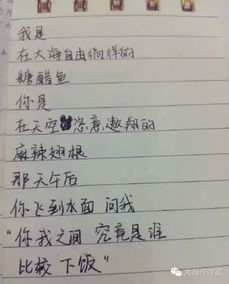 我是
在大海自由徜徉的
糖醋鱼
你是
在天空恣意遨翔的
麻辣翅根
那天午后
你飞到水面 问我
“你我之间 究竟是谁
比较 下饭”